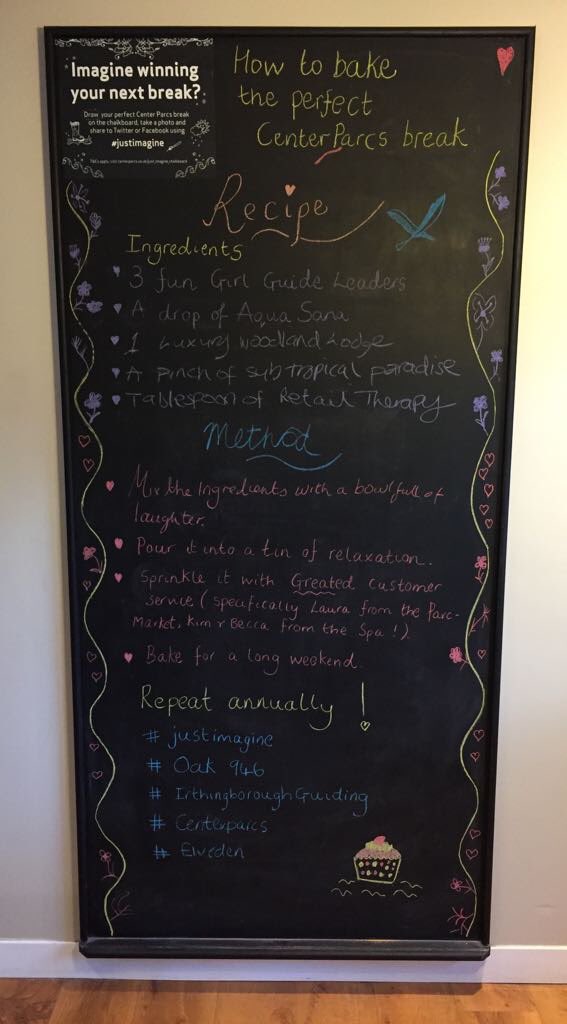 Imagine winning
your next break?
Draw your perfect Center Parcs break
on the chalkboard, take a photo and
share to Twitter or Facebook using
#justimagine
T&Cs apply, visit centerparcs.co.uk/just_imagine_chalkboard
How to bake
the perfect
CenterParcs break
Recipe
Ingredients
3 fun Girl Guide Leaders
A drop of Aqua Sana
1 Luxury Woodland Lodge
A Pinch of subtropical paradise
Tablespoon of Retail Therapy
Method
Mix the Ingredients with a bowl full of
laughter.
Pour it into a tin of relaxation.
Sprinkle it with Greated customer
service (specifically Laura from the Parc-
Market, Kim & Becca from the Spa!).
Bake for a long weekend.
Repeat annually!
# justimagine
# Oak 946
# IrthingboroughGuiding
# Centerparcs
# Elveden